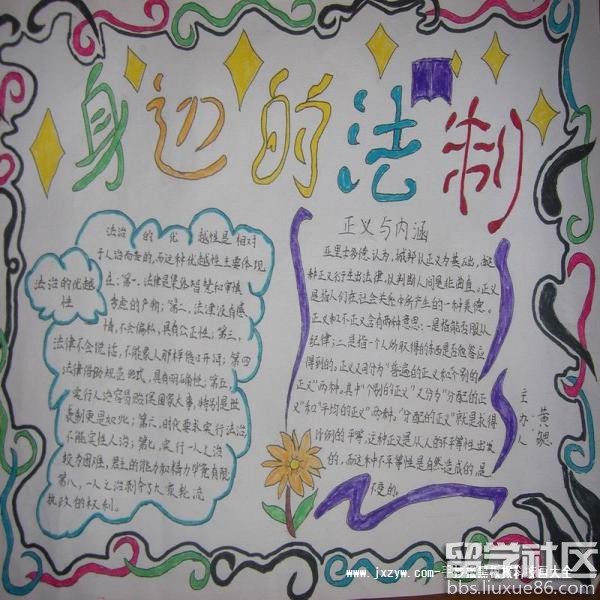 身边的法制
法治的优越性
法治的优越性是相对
于人治而言的,而这种优越性主要体现
在:第一,法律是集体智慧和审慎
考虑的产物;第二,法律没有感
情,不会偏私,具有公正性;第三,
法律不会说话,不能象人那样信口开河;第四
法律借助规范形式,具有明确性;第五,
实行人治容易贻误国家大事,特别是世
袭制更是如此;第六,时代要求实行法治,
不能实行人治;第七,实行一人之治
较为困难,君主的能力和精力毕竟有限
第八,一人之治剥夺了大家轮流
执政的权利。
正义与内涵
亚里士多德认为,城邦以正义为基础,由
种正义衍生出法律,以判断人间是非曲直。正义
是指人们在社会关系中所产生的一种美德。
正义和不正义含有两种意思:一是指能否服从
纪律;二是指一个人所取得的东西是否他答应
得到的。正义又可分为“普遍的正义和个别的
正义”两种。其中“个别的正义”又分为“分配的正
义”和“平均的正义”两种。“分配的正义”就是求得
比例的平等,这种正义是从人的不平等性出发
的,而这种不平等性是自然造成的,是
不变的。
主办人
黄骥
www.jxzyw.com
留学社区
bbs.liuxue86.com